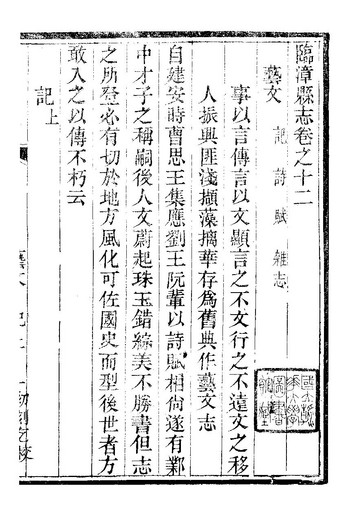 臨漳縣志卷之十二
藝文 記 詩 賦 雜志
事以言傳言以文顯言之不文行之不遠文之移
人振興匪淺擷藻摛華存爲舊典作藝文志
自建安時曹思王集應劉王阮輩以詩賦相尙遂有鄴
中才子之稱嗣後人文蔚起珠玉錯綜美不勝書但志
之所登必有切於地方風化可佐國史而型後世者方
敢入之以傳不朽云
記上